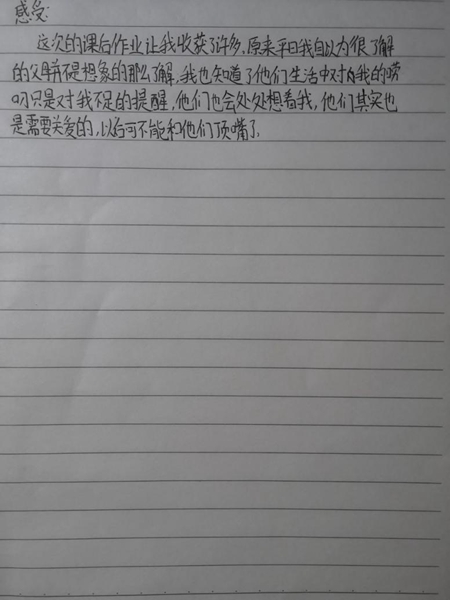 感受:
这次的课后作业让我收获了许多,原来平日我自以为很了解
的父母并不是想象的那么了解,我也知道了他们生活中对我的唠
叨只是对我不足的提醒,他们也会处处想着我,他们其实也
是需要关爱的,以后可不能和他们顶嘴了.